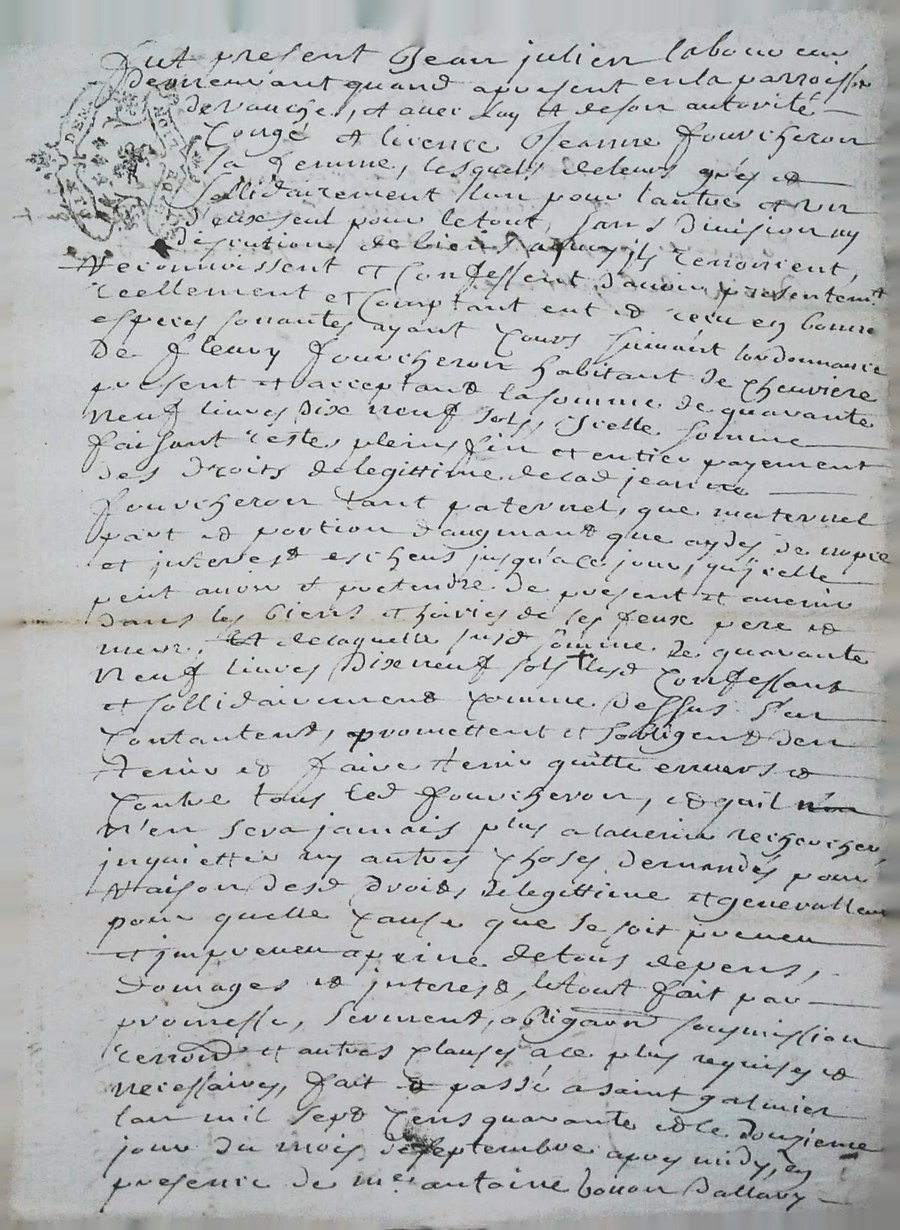 fut present Jean julien laboureur
demeurant quand apresent en la parroisse
de vauche, et avec luy et de son autorité
Congé et licence Jeanne fourcheron
sa femme, lesquels de leurs grés et
sollidairement l'un pour l'autre et un
d'eux seul pour le tout, sans division ny
discution de biens a quoy ils renoncent,
Reconnoissent et Confessent d'avoir presentemt
reellement et Comptant eut et receu en bonne
especes sonantes ayant Cours suivant lordonnance
De fleury fourcheron habitant de Cheuriere
present et acceptand la somme de quarante
neuf livres dix neuf sols, icelle somme
faisant reste, plein, fin et entier payement
des droits de legittime de lad jeanne
fourcheron tant paternel, que maternel
part et portion d'augmand que
et interest escheus jusqu'a ce jour, qu'icelle
peut avoir et pretendre de present et avenir
dans les biens et hoiries de ses feux pere et
mere, Et de laquelle susd somme de quarante
Neuf livres Dix neuf sols lesd Confessant
et sollidairement Comme Dessus s'en
Contantent, promettent et s'obligent d'en
tenir et faire tenir quitte envers et
Contre tous led fourcheron, et quil
n'en sera jamais plus a lavenir recherchér,
inquietter ny autres Choses demandés pour
Raison desd Droits de legittime et generallem
pour quelle Cause que se soit preveu
et impreveu a peine de tous depens,
Domages et interest, le tout fait par
promesse, serment, obligaon soumission
renond et autres Clauses a ce plus requises et
necessaires, fait et passé a saint galmier
lan mil sept Cens quarante et le douzieme
jour du mois de septembre apres midy, en
presence de me antoine dallary